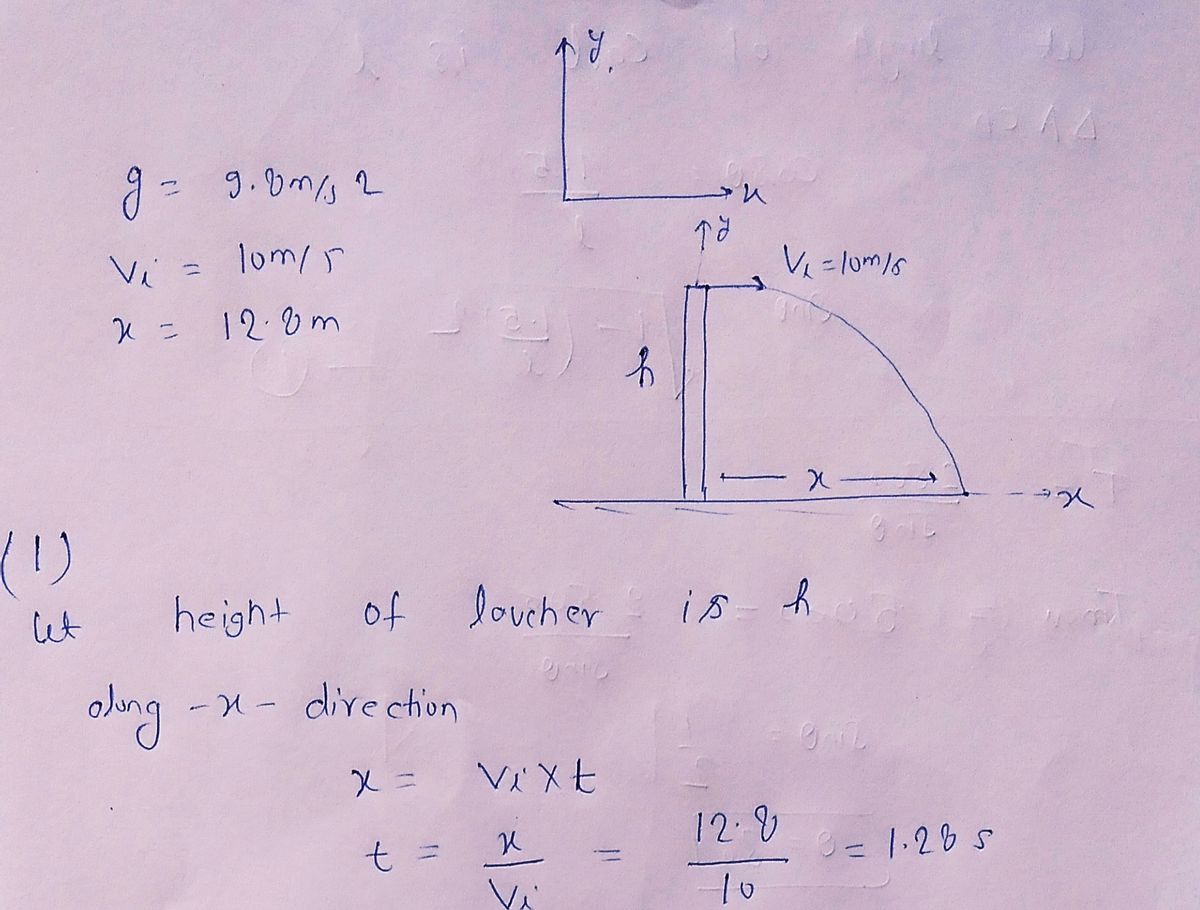 y
x
g = 9.8m/s 2
y
Vi = 10m/s
Vi = 10m/s
x = 12.8m
h
x
x
(1)
let height of loucher is h
along -x- direction
x = Vi X t
t = x/Vi = 12.8/10 = 1.28 s